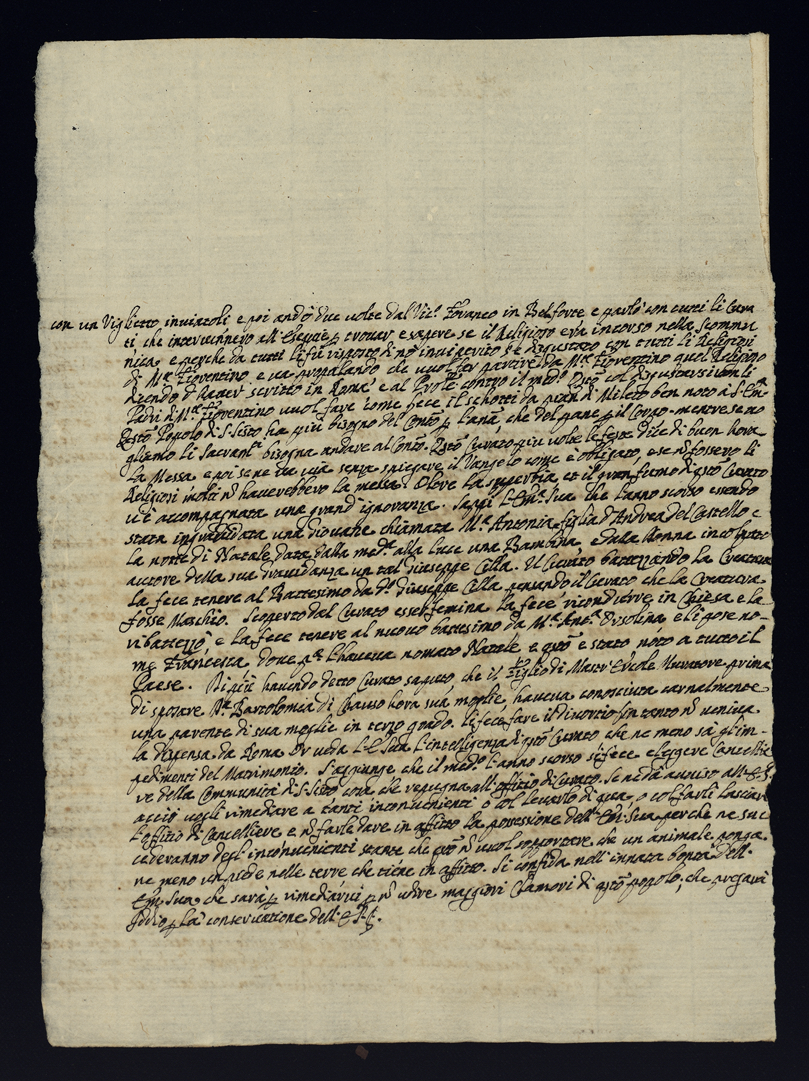 con un Viglietto inviatoli, e poi andò due volte dal Vic.° foraneo in Belforte e parlò con tutti li Cura
ti che intervennero all'Esequie p trovar, e sapere se il Religioso era incorso nella scommu
nica, e perche da tutti li fù risposto di nò inviperito s'è disgustato con tutti li Religiosi
di M.te Fiorentino e va propalando che vuol far partire da M.te Fiorentino quel Religioso
dicendo d'haver scritto in Roma e al Prôle contro il med.° Q.sto col disgustarsi con li
Padri di M.te Fiorentino vuol fare come fece il schotti da pian di Mileto ben noto a S. Em.
Q.sto Popolo di S. Sisto hà più bisogno del Conv.to p l'anã, che del pane p il Corpo. mentre se vo
gliamo li Sacram.ti bisogna andare al Conv.to Q.sto Curato più volte le feste dice di buon hora
la Messa, e poi se ne va via senza spiegare il Vangelo come è obligato, e se nõ fossero li
Religiosi molti nõ haverebbero la messa. Oltre la superbia, et il gran fumo di q.sto Curato
vi è accompagnata una grand'ignoranza. Sappi l'Em.a Sua che l'anno scorso essendo
stata ingravidata una Giovane chiamata M.a Antonia figlia d'Andrea del Castello e
la notte di Natale data dalla med.a alla luce una Bambina, e dalla Donna incolpato
autore della sua gravidanza un tal Giuseppe Cella. Il Curato battezzando la Creatura
la fece tenere al Battesimo da d.° Giuseppe Cella, pensando il Curato che la Creatura
fosse Maschio. Scoperto dal Curato esser femina la fece ricondurre in Chiesa, e la
ribattezzò, e la fece tenere al nuovo battesimo da M.a Ant.a Orsolina, e li pose no-
me Francesca, dove p.a l'haveva nomato Natale e q.sto è stato noto a tutto il
Paese. Di più havendo detto Curato saputo che il Figlio di Mastr'Ercole Muratore prima
di sposare M.a Bartolomea di Chauso hora sua moglie, haveva conosciuta carnalmente
una parente di sua moglie in terzo grado. li fece fare il divortio sin tanto nõ veniva
la dispensa da Roma. Or veda l'E. Sua l'intelligenza di q.sto Curato che ne meno sà gl'im-
pedimenti del Matrimonio. S'aggiunge che il med.° l'anno scorso si fece eleggere Cancellie
re della Communità di S. Sisto cosa che repugna all'offitio di Curato. Se ne dà avviso all'E. S.
acciò vogli rimediare a tanti inconvenienti o col levarlo di qua, o col farli lasciare
l'offitio di Cancelliere, e nõ farle dare in affitto la possessione dell'Em. Sua, perche ne suc
cederanno degl'inconvenienti stante che q.sto nõ vuol sopportare che un animale ponga
ne meno un piede nelle terre che tiene in affitto. Si confida nell'innata bontà dell'
Em. Sua, che sarà p rimediarvi p nõ udire maggiori Clamori di q.sto popolo, che pregarà
Iddio p la conservatione dell'E. S.